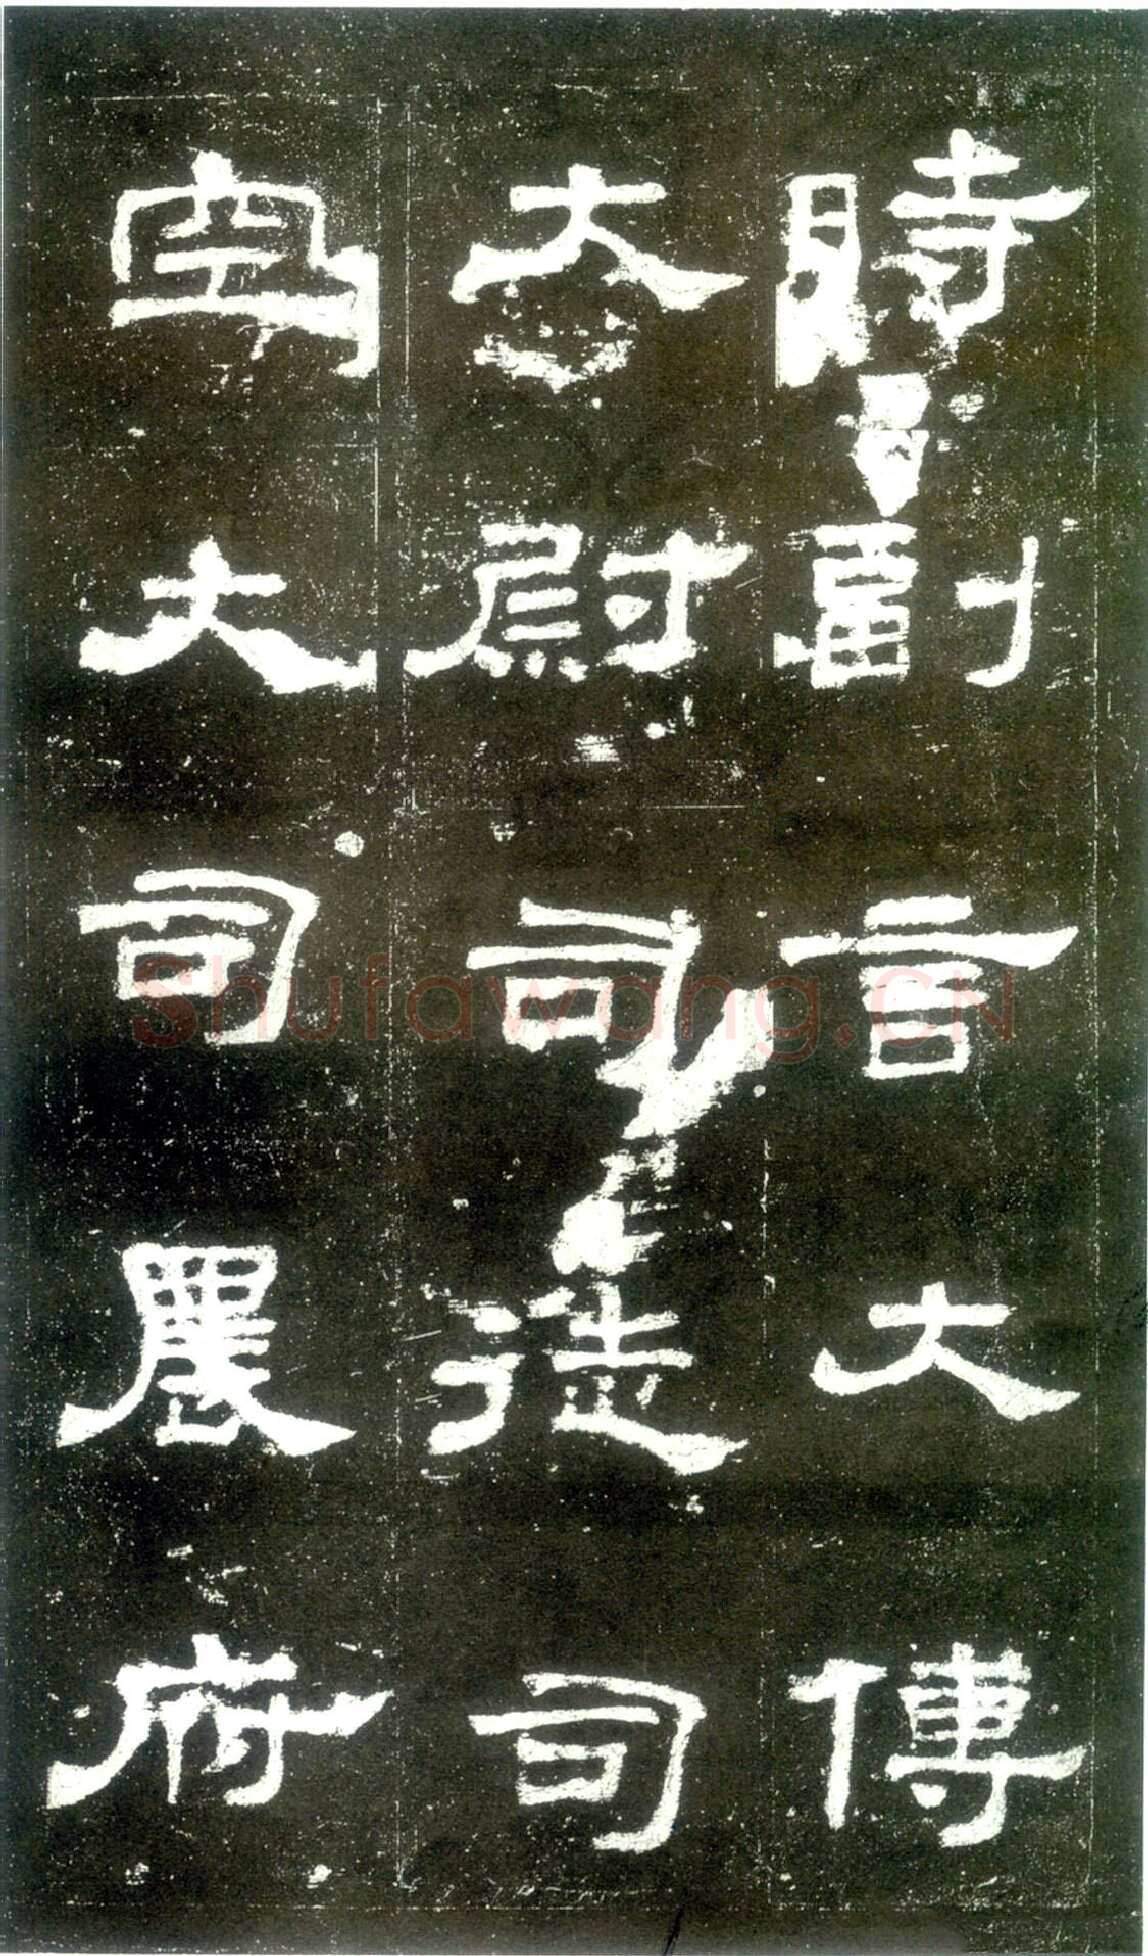 時副言大傅
太尉司徒司
空大司農府
Shufawang.CN